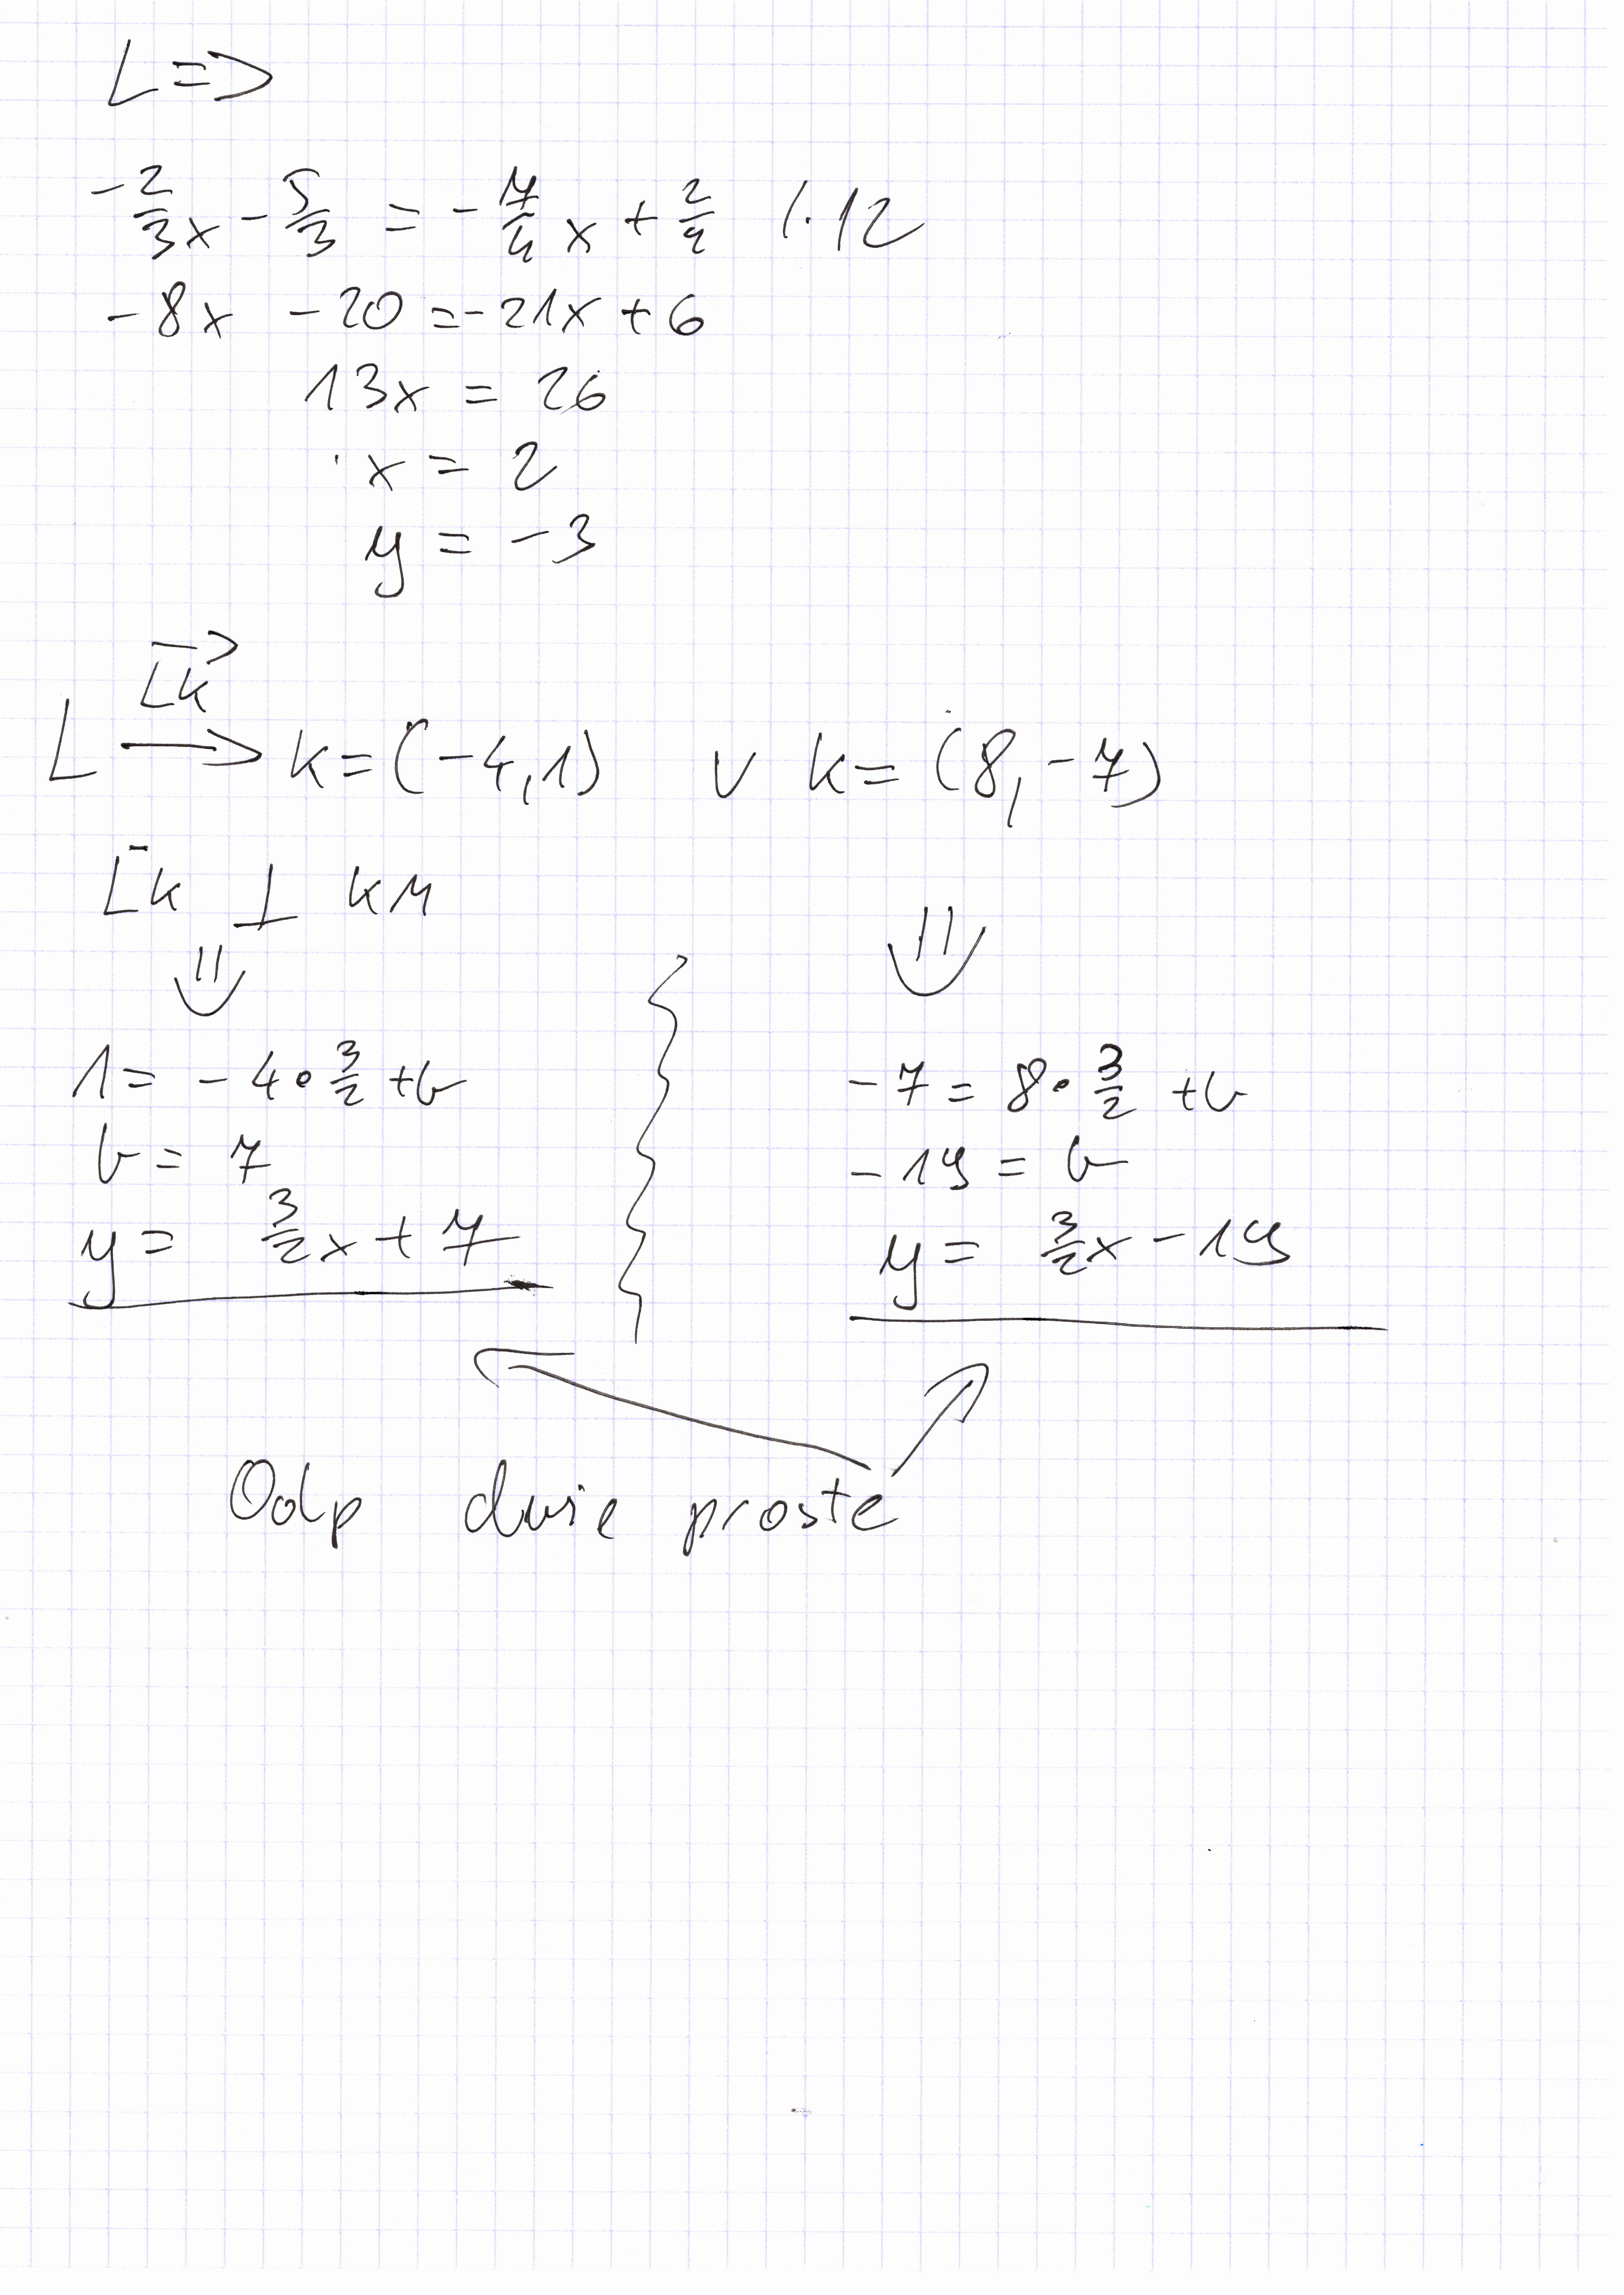 L =>
-2/3 x - 5/3 = -7/4 x + 2/4 /·12
-8x -20 = -21x + 6
13x = 26
x = 2
y = -3
LK
L → k = (-4,1) v k = (8,-7)
Lk ⊥ kM
⇓ ⇓
1 = -4 · 3/2 + b
-7 = 8 · 3/2 + b
b = 7
-19 = b
y = 3/2 x + 7
y = 3/2 x - 19
Odp dwie proste